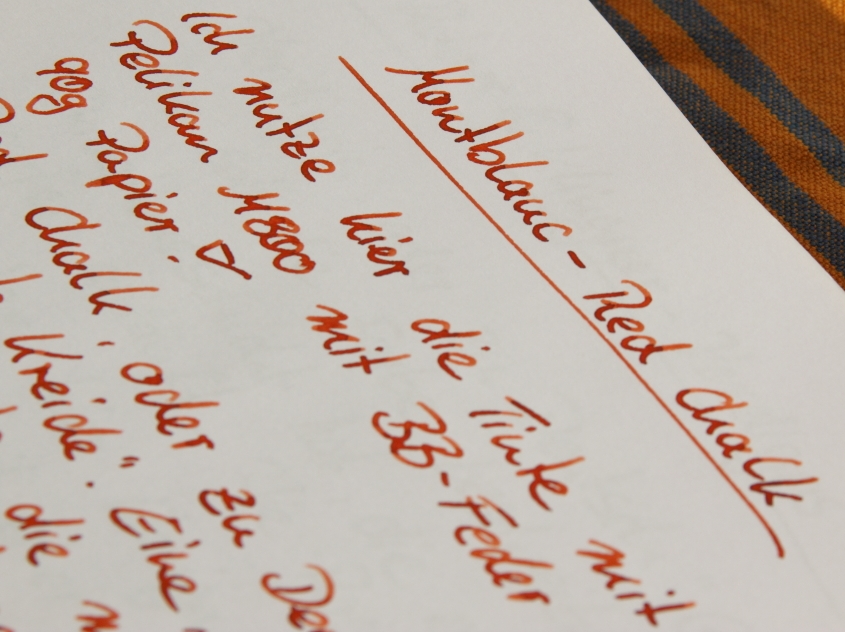 Montblanc - Red Chalk
Ich nutze hier die Tinte mit
Pelikan M800 mit BB-Feder
90g Papier. ▽
Red Chalk, oder zu De
Kreide". Eine
die